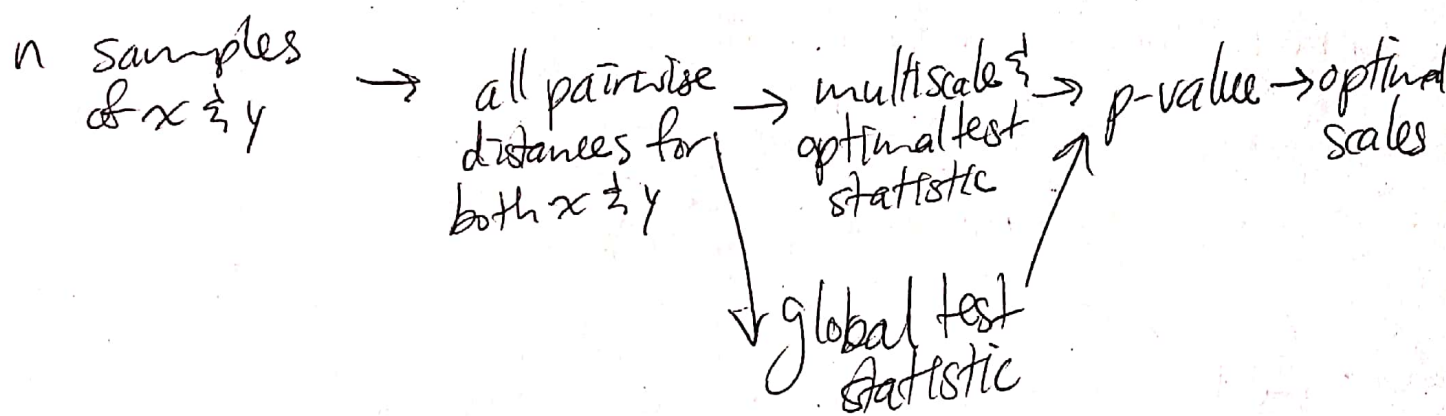 n samples
of x & y
→
all pairwise
distances for
both x & y
→
multiscale &
optimal test
statistic
→
p-value → optimal
scales
global test
statistic